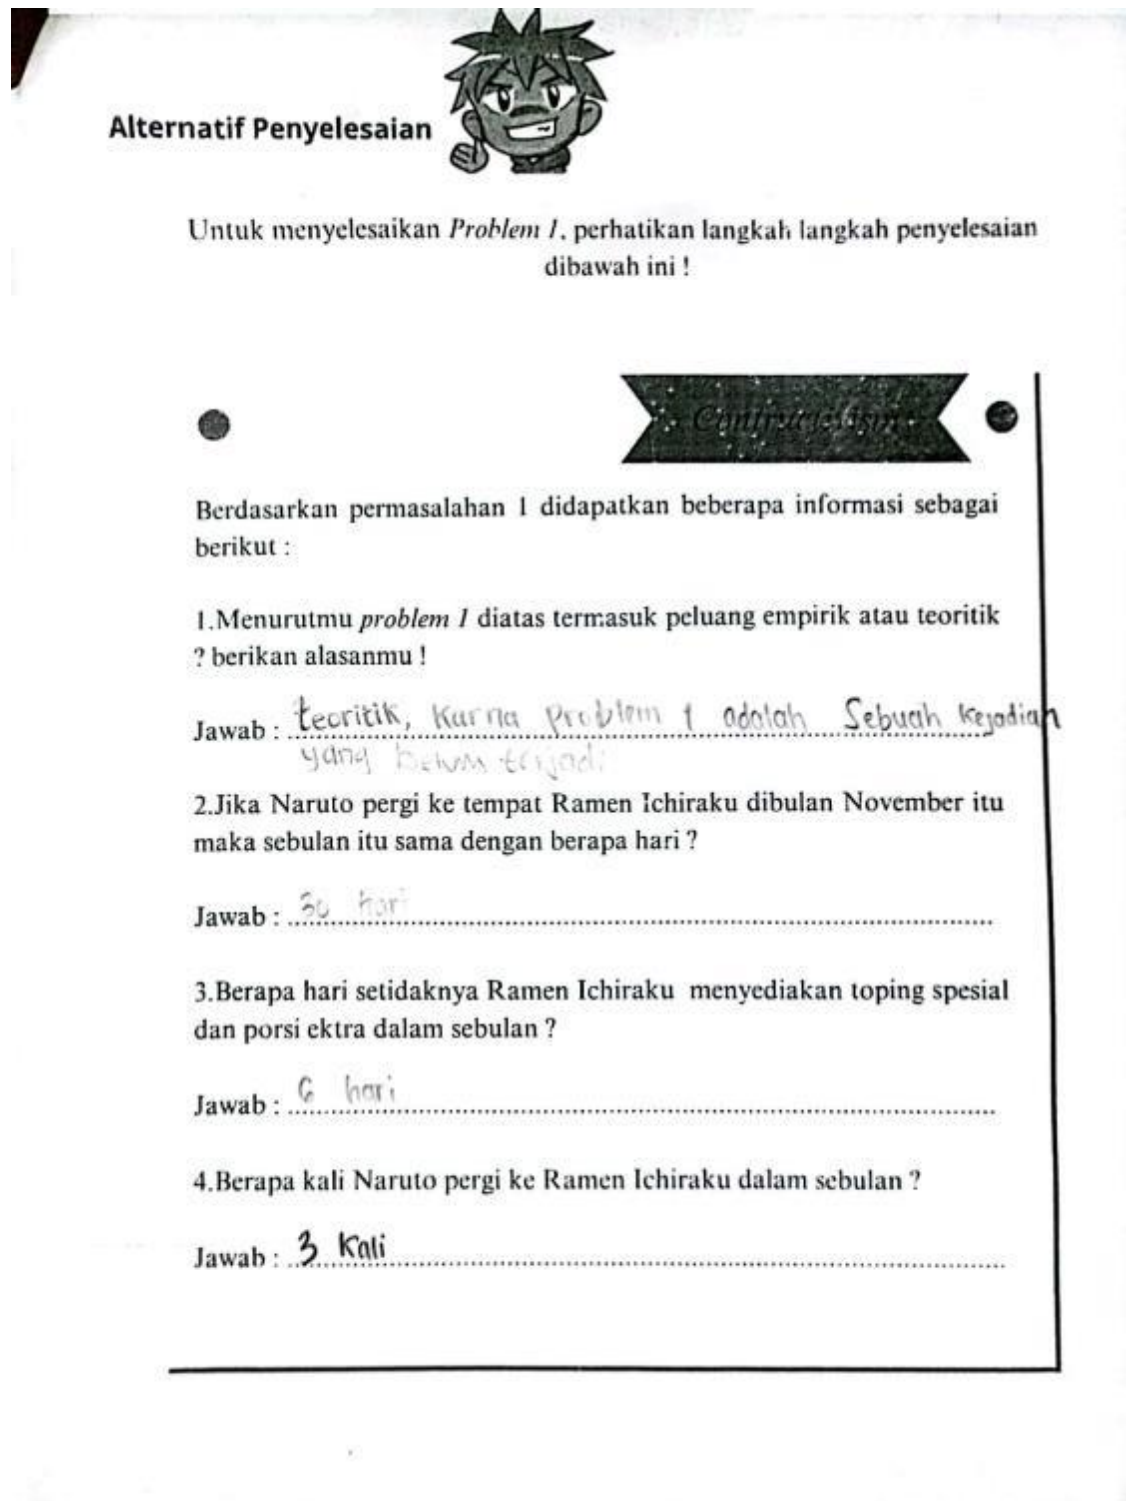 Alternatif Penyelesaian
Untuk menyelesaikan Problem 1, perhatikan langkah langkah penyelesaian
dibawah ini !
Berdasarkan permasalahan 1 didapatkan beberapa informasi sebagai
berikut :
1.Menurutmu problem 1 diatas termasuk peluang empirik atau teoritik
? berikan alasanmu !
Jawab : teoritik, Karna Problem 1 adalah Sebuah Kejadian
yang belum terjadi
2.Jika Naruto pergi ke tempat Ramen Ichiraku dibulan November itu
maka sebulan itu sama dengan berapa hari ?
Jawab : 30 hari
3.Berapa hari setidaknya Ramen Ichiraku menyediakan toping spesial
dan porsi ektra dalam sebulan ?
Jawab : 6 hari
4.Berapa kali Naruto pergi ke Ramen Ichiraku dalam sebulan ?
Jawab : 3 Kali